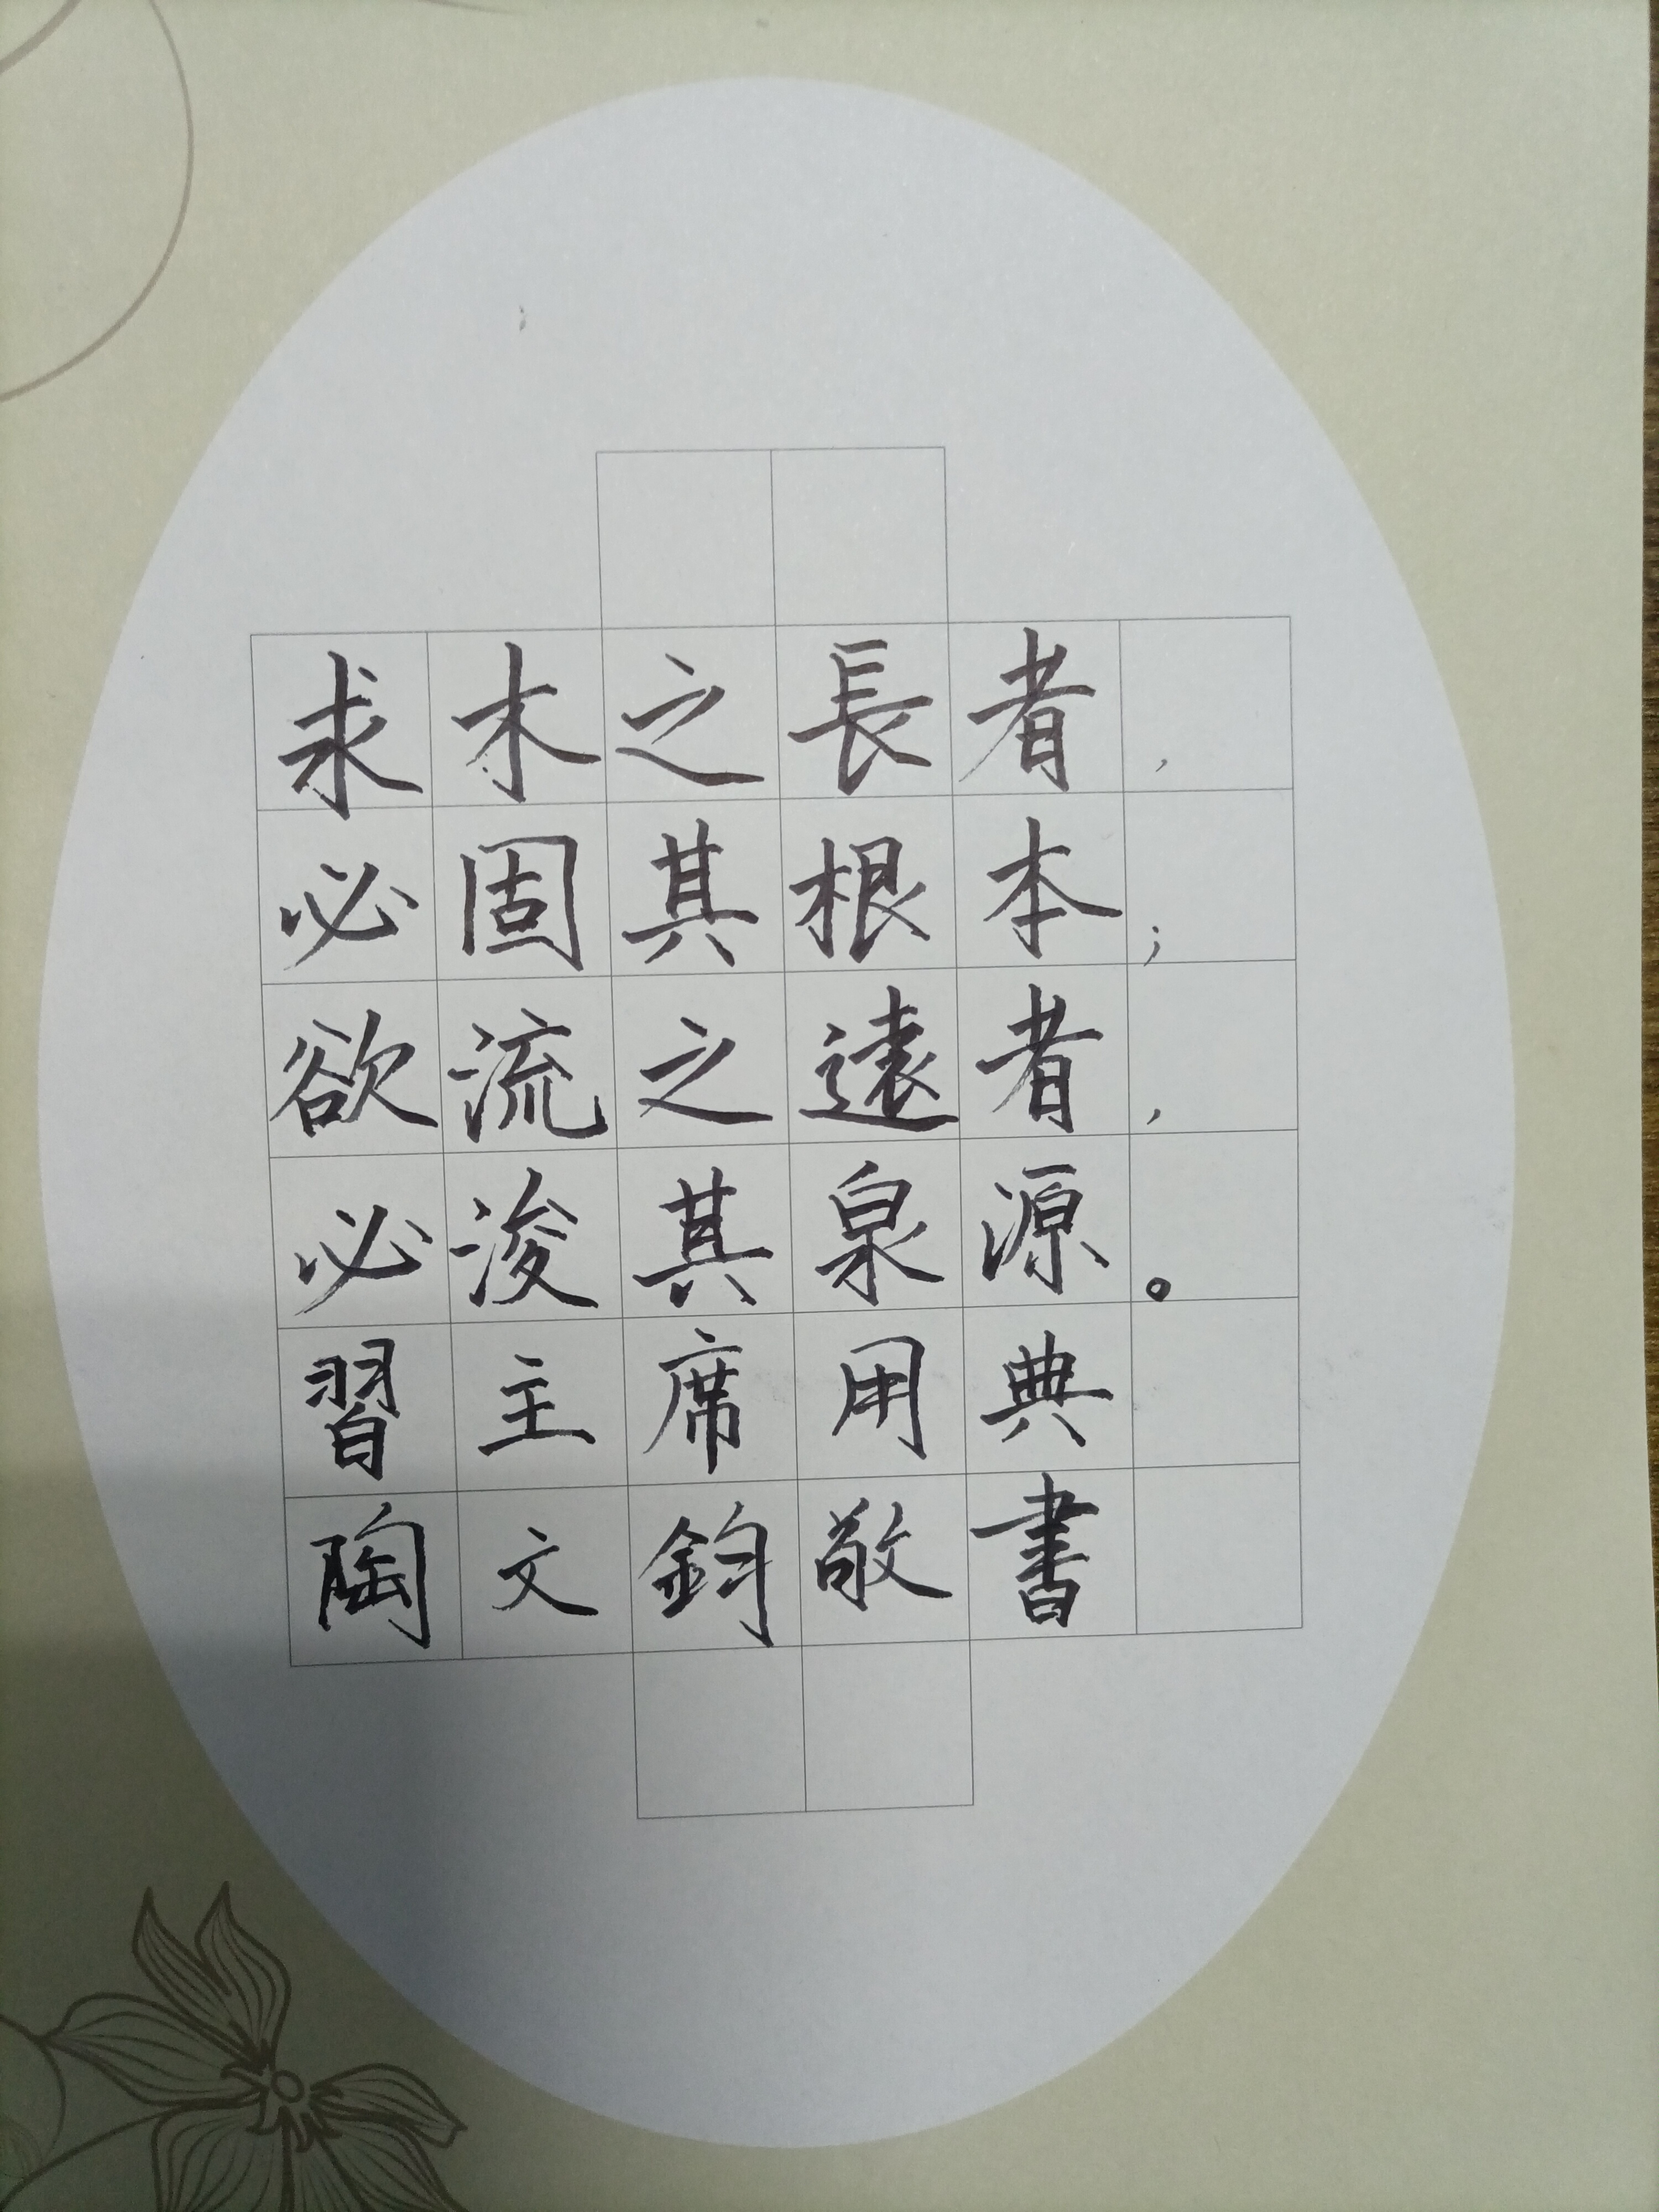 求木之長者，
必固其根本；
欲流之遠者，
必浚其泉源。
習主席用典
陶文鈞敬書